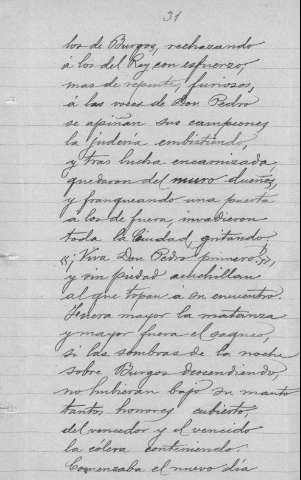 31
los de Burgos, rechazando
á los del Rey con esfuerzo,
mas de repente, furiosos,
á las voces de Don Pedro
se apiñan sus campeones
la judería embistiend,
y tras lucha encarnizada
quedaron del muro dueños,
y franqueando una puerta
a los de fuera, invadieron
toda la Ciudad, gritando
"¡Viva Don Pedro primero!",
y sin piedad acuchillan
al que topan á su encuentro.
mayor la matanza
y mayor fuera el saqueo,
si las sombras de la noche
sobre Burgos descendiendo,
no hubieran bajo su manto
tantos horrores cubierto,
del vencedor y el vencido
la cólera conteniendo.
Comenzaba el nuevo día